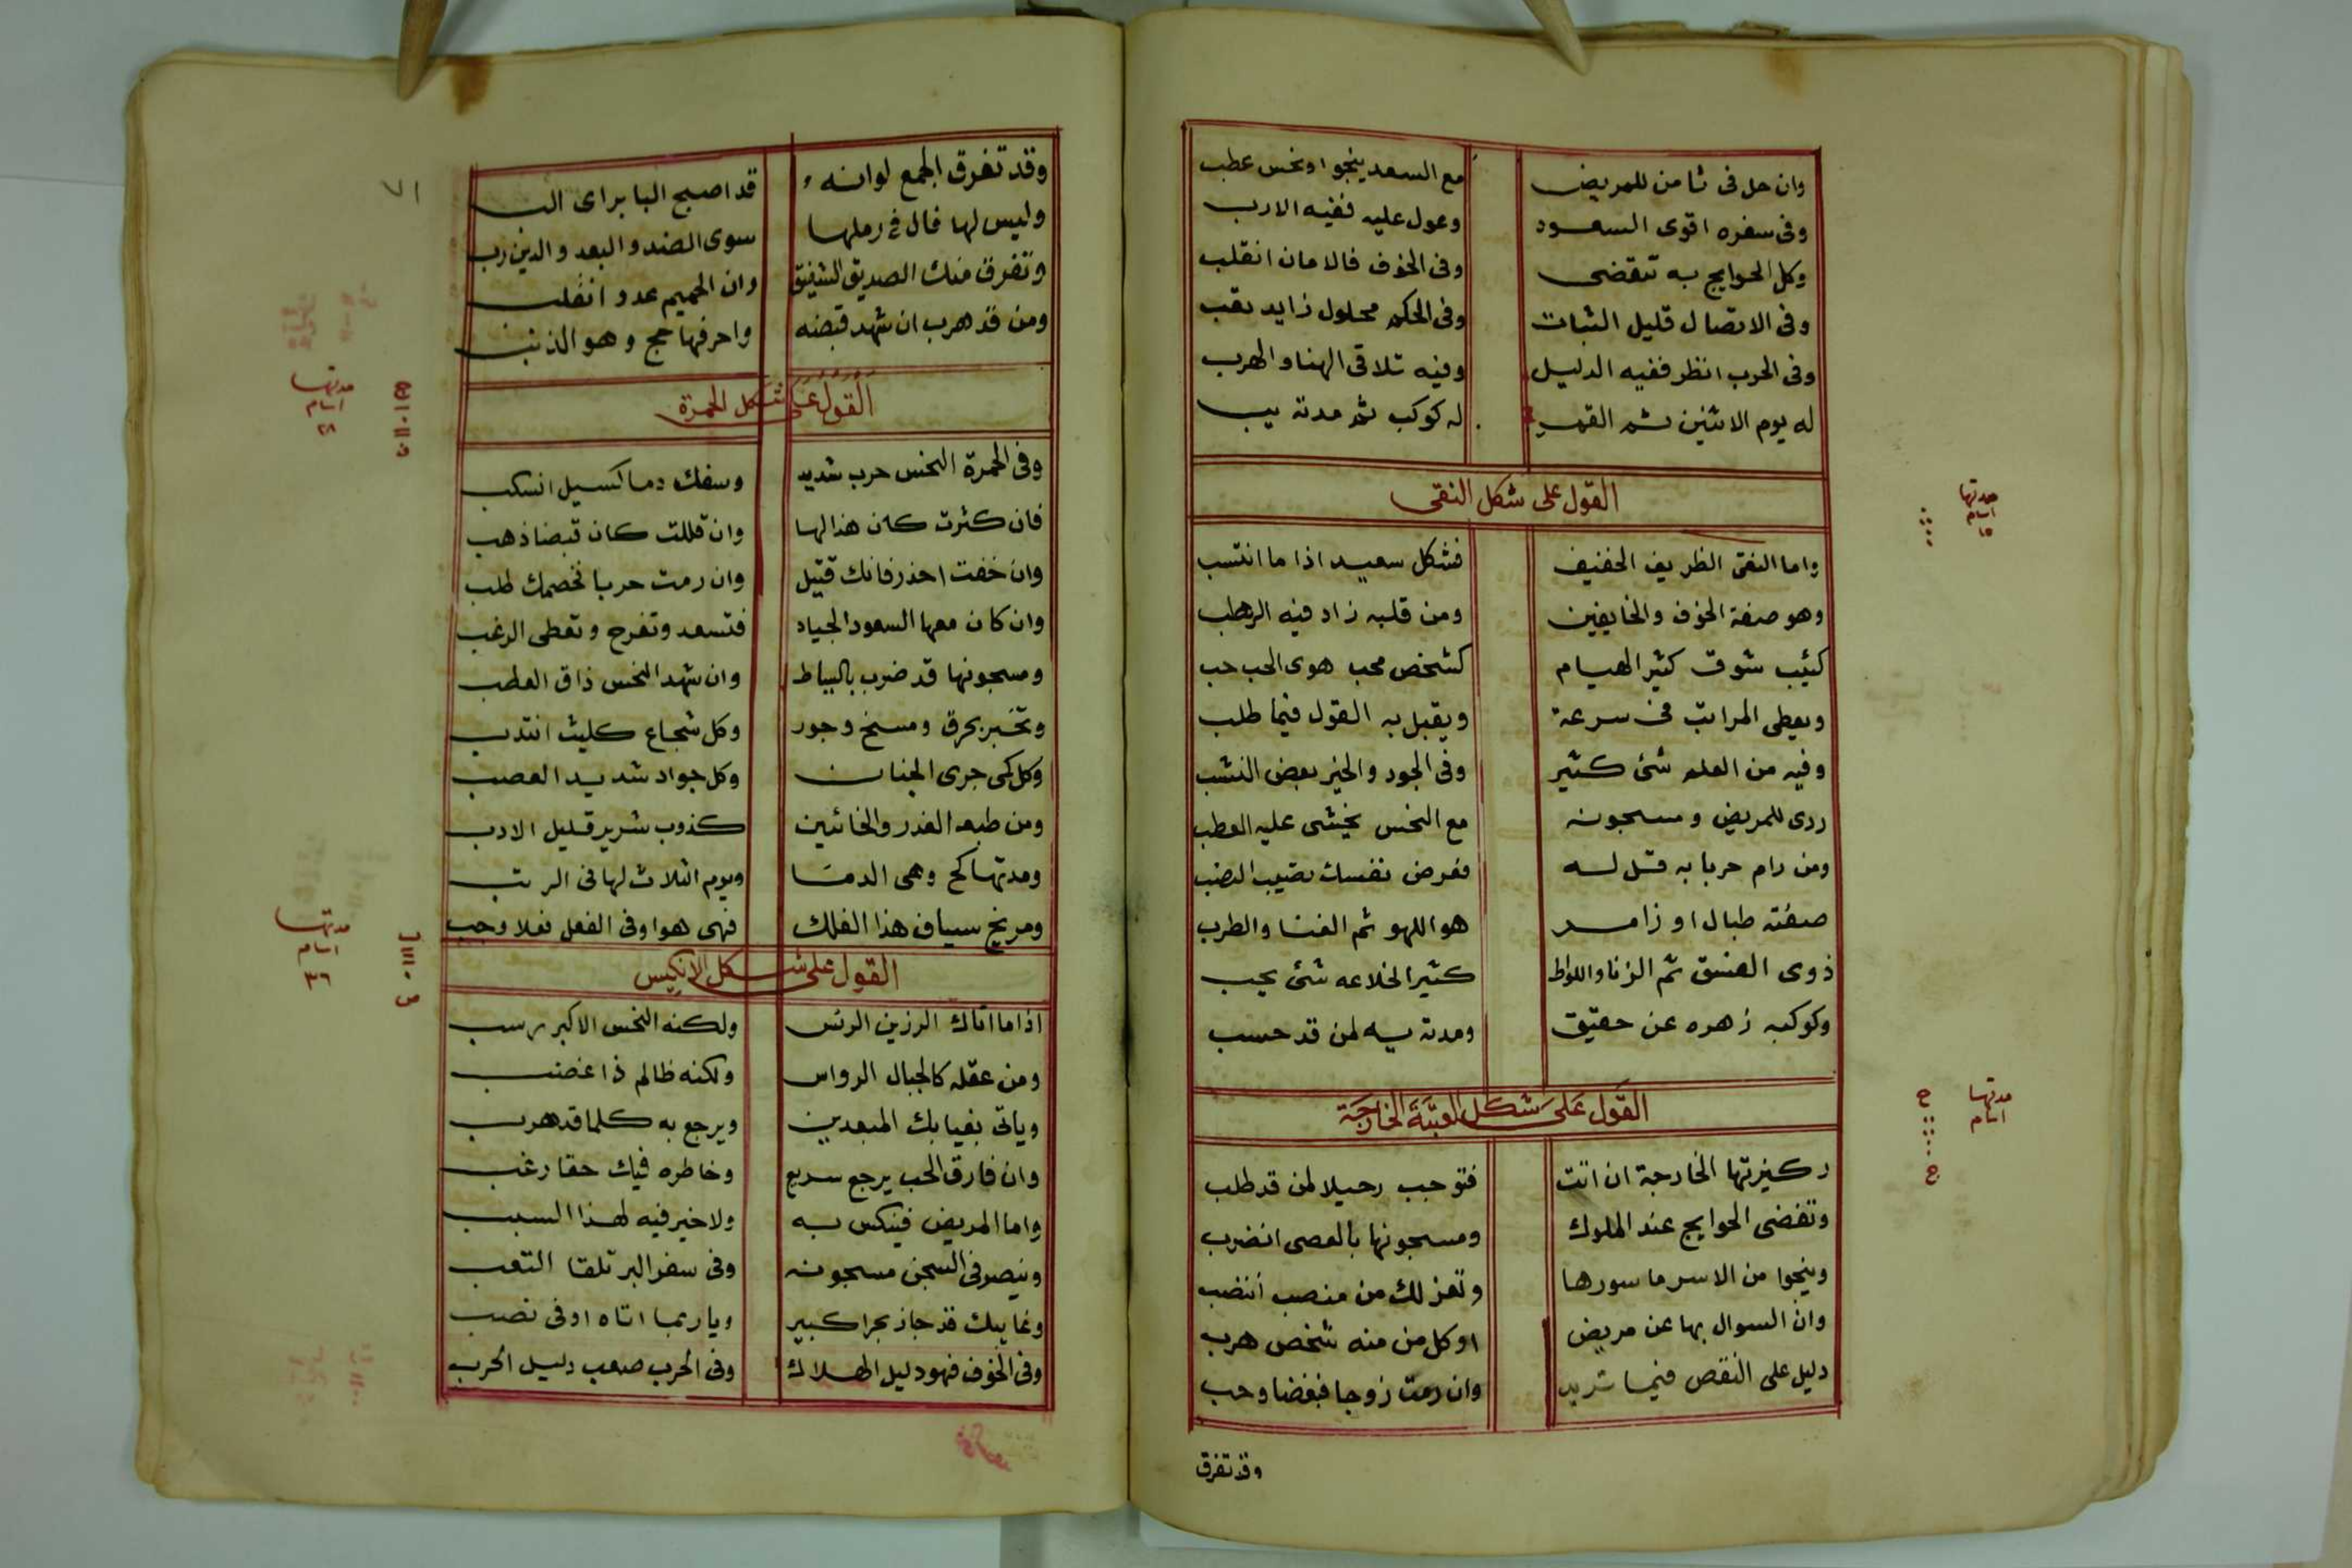 وان حل فى ثامن للمريض مع السعد ينجوا ونحس عطب
وفى سفره اقوى السعود وعول عليه ففيه الارب
وكل الحوايج به تنقضى وفى الخوف فالامان انقلب
وفى الاتصال قليل الثبات وفى الحكم محلول زايد
وفى الحرب انظر ففيه الدليل وفيه تلاقى الهنا والهرب
له يوم الاثنين ثم القمر له كوكب ثم مدته يب
القول على شكل النقى
مدتها ايام
واما النقى الظريف الخفيف فشكل سعيد اذا ما انتسب
وهو صفة الخوف والخايفين ومن قلبه زاد فيه الرهب
كئيب شوق كثير الهيام كشخص محب هوى الحب حب
ويعطى المراتب فى سرعة ويقبل به القول فيما طلب
وفيه من العلم شئ كثير وفى الجود والخير بعض النشب
ردى للمريض ومسجونه مع النحس يخشى عليه العطب
ومن رام حربا به قل له نفسك تصيب
صفته طبال او زامر هو اللهو ثم الغنا والطرب
ذوى العشق ثم الزنا واللواط كثير الخلاعه شئ عجب
وكوكبه زهره عن حقيق ومدته يه لمن قد حسب
القول على شكل العتبة الخارجة
مدتها ايام
ركيزتها الخارجة ان اتت فتوجب رحيلا لمن قد طلب
وتقضى الحوايج عند الملوك ومسجونها بالعصى انضرب
وينجوا من الاسر ماسورها وتعزلك من منصب
وان السوال بها عن مريض او كل من منه شخص هرب
دليل على النقص فيما تريد وان رمت زوجا فبغضا وجب
وقد تفرق
٧١
وقد تفرق الجمع لوانه قد اصبح البا براى
وليس لها فال فى رملها سوى الضد والبعد والدين رب
وتفرق منك الصديق الشفيق وان الحميم عدو انقلب
ومن قد هرب ان شهد قبضه واحرفها حج وهو الذنب
القول على شكل الحمرة
مدتها ايام ٢٨
وفى الحمرة النحس حرب شديد وسفك دما كسيل انسكب
فان كثرت كان هذا لها وان قللت كان قبضا ذهب
وان خفت احذر فانك قتيل وان رمت حربا فخصمك طلب
وان كان معها السعود الجياد فتسعد وتفرح وتعطى الرغب
ومسجونها قد ضرب بالسياط وان شهد النحس ذاق العطب
وتخبر بحرق ومسخ وجور وكل شجاع كليث انتدب
وكل كمى جرى الجنان وكل جواد شديد العصب
ومن طبعه الغدر والخائنين كذوب شرير قليل الادب
ومدتها كح وهى الدما ويوم الثلاث لها فى الرتب
ومريخ سياف هذا الفلك فهى هوا وفى الفعل فعلا وجب
القول على شكل الانكيس
مدتها ايام ٣٦
اذا ما اتاك الرزين ولكنه النحس الاكبر
ومن عقله كالجبال الرواس ولكنه ظالم ذا غضب
وياتى بغيابك المبعدين ويرجع به كلما قد هرب
وان فارق الحب يرجع سريع وخاطره فيك حقا رغب
واما المريض فينكس به ولا خير فيه لهذا السبب
فى السجن مسجونه وفى سفر البر تلقا التعب
وغايبك قد جاز بحرا كبير ويا ربما اتاه اوفى نصب
وفى الخوف فهو دليل الهلاك وفى الحرب صعب دليل الحرب